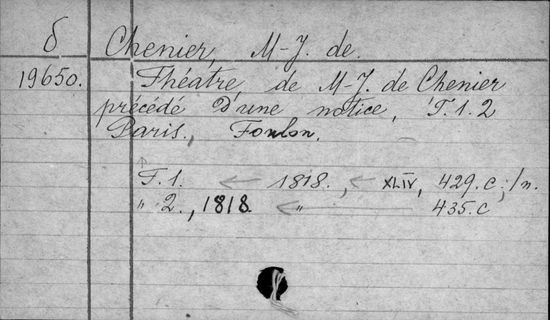 б Chenier, M-J. de.
19650. Théâtre, de M-J. de Chenier
précédé D'une notice, T. 1. 2
Paris., Foulon.
T. 1. ← 1818., ← XLIV, 429. c.; /n.
„ 2., 1818. ← „ 435. c